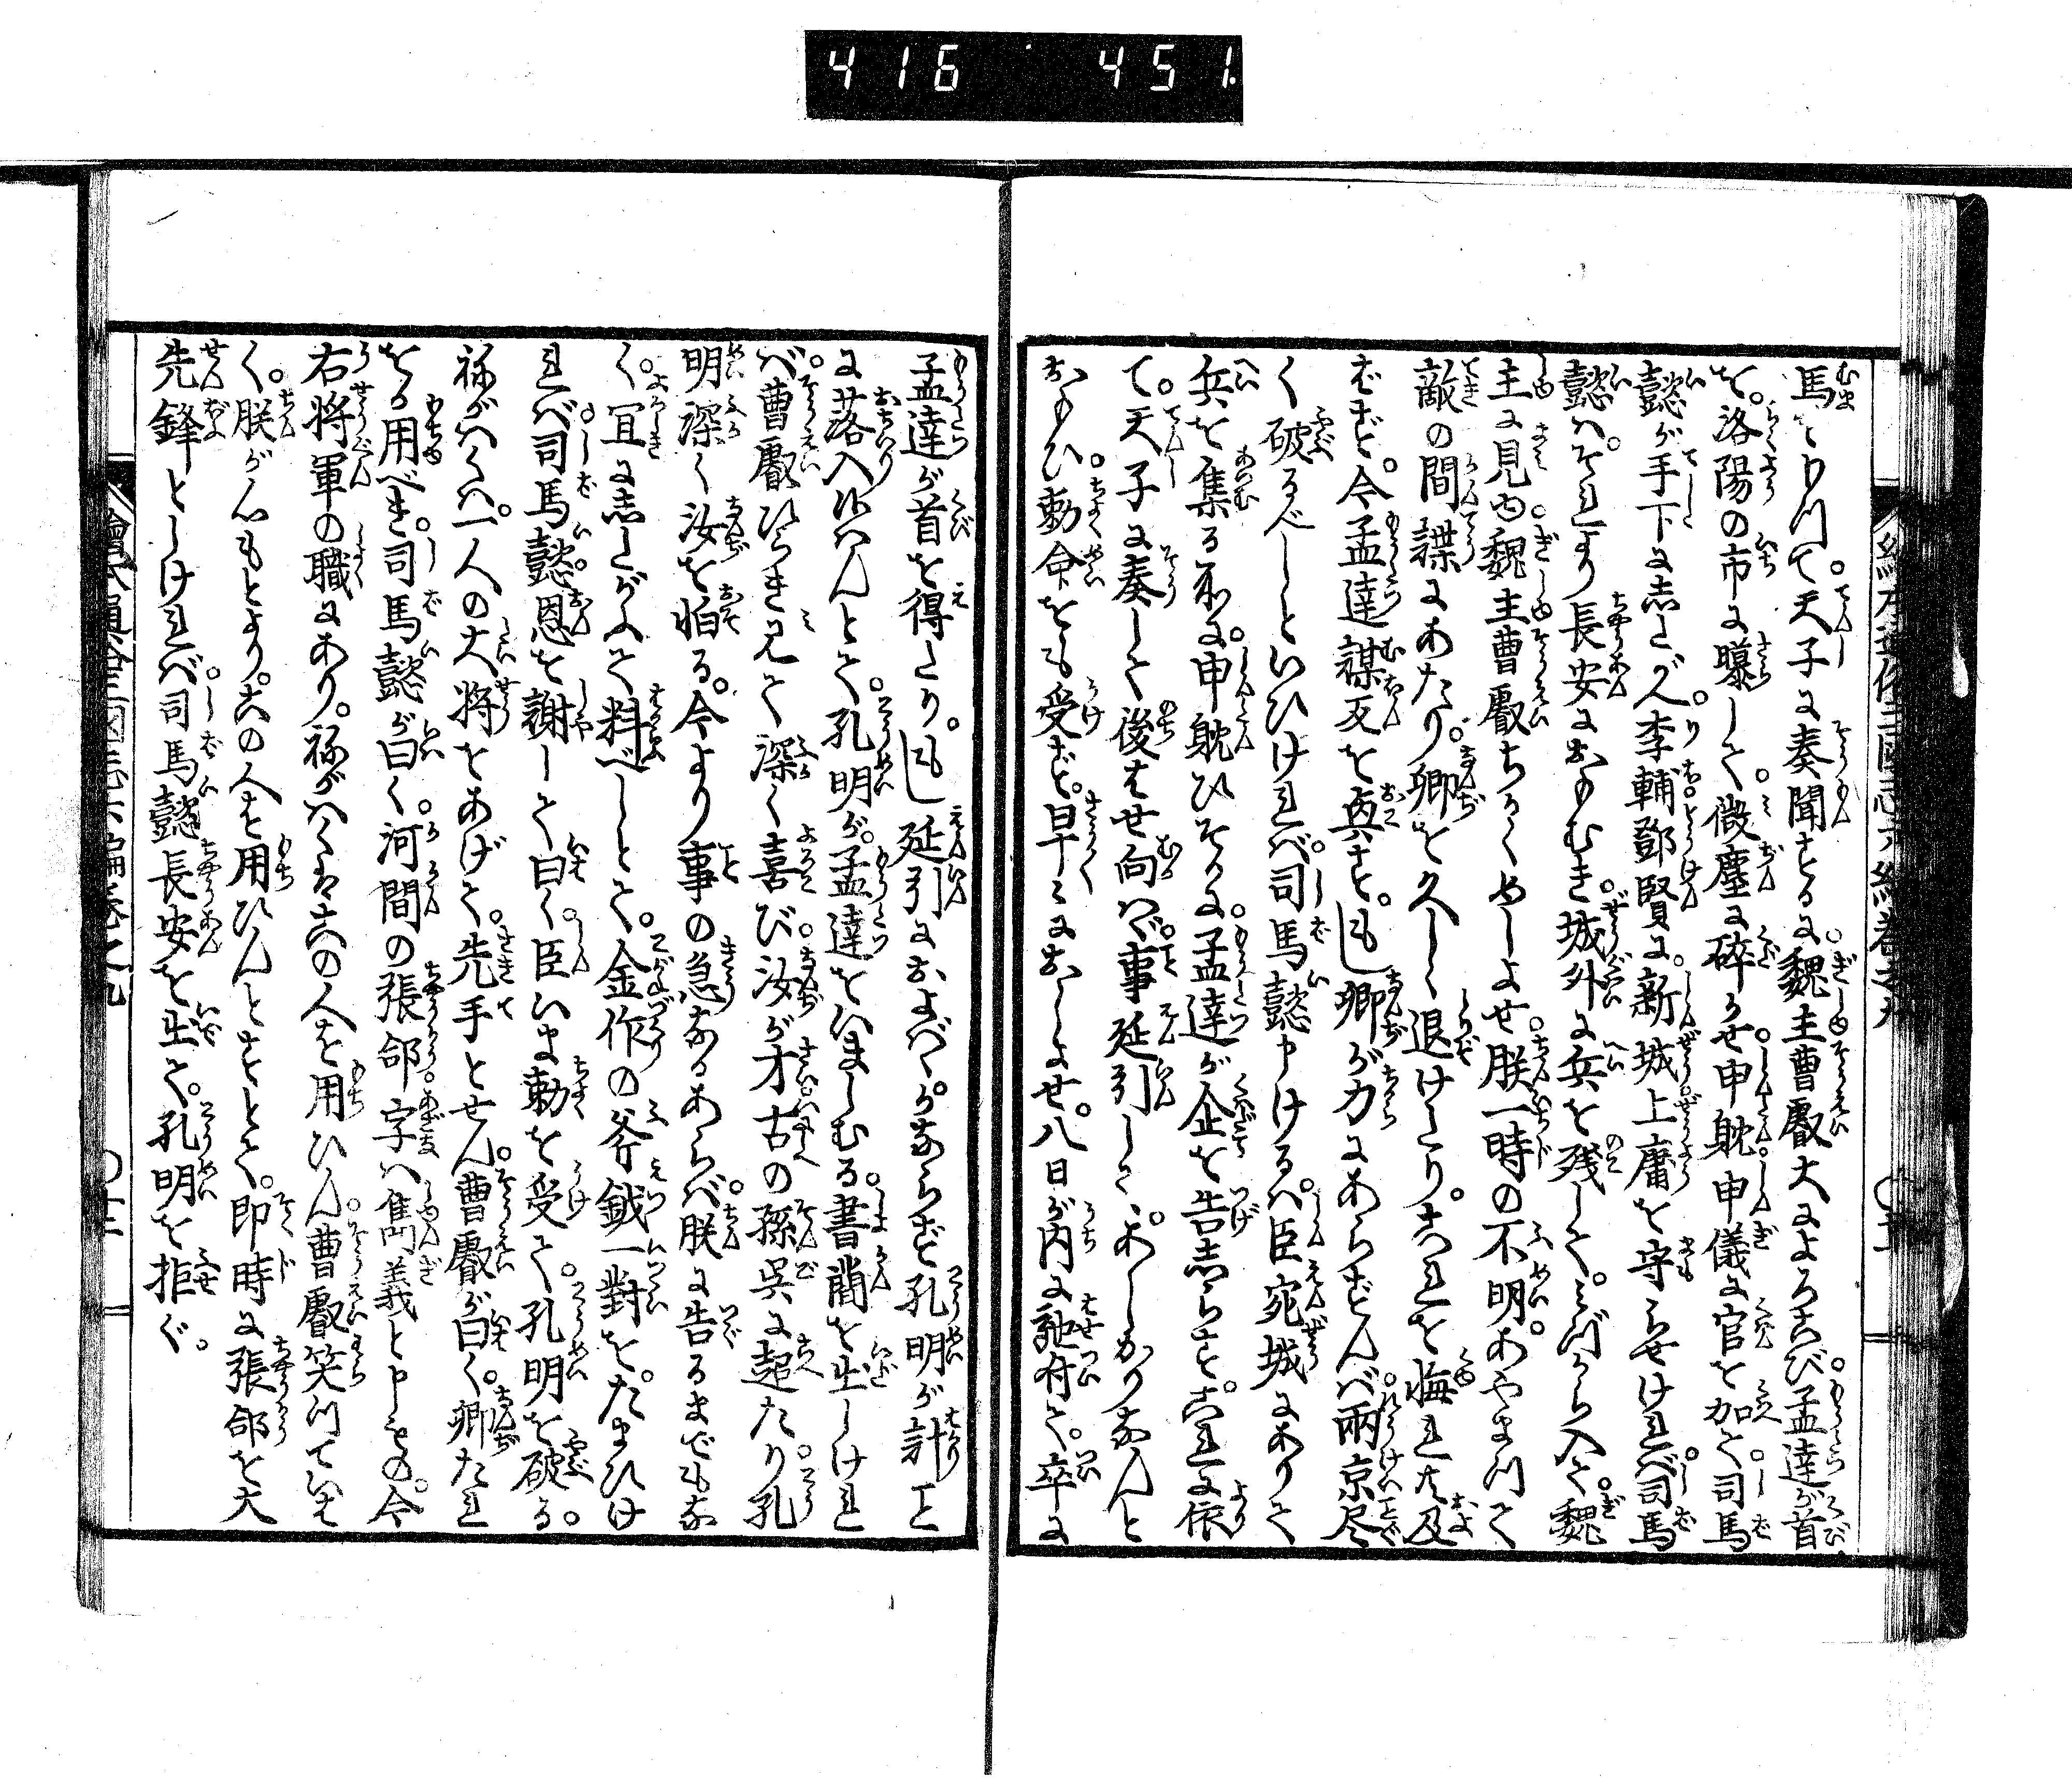 416 451
馬をうつて。天子に奏聞するに。魏主曹叡大によろこび。孟達が首
を。洛陽の市に曝して。微塵に砕かせ。申耽。申儀に官を加て。司馬
懿が手下にしたがへ。李輔鄧賢に。新城上庸を守らせければ。司馬
懿ハ。それより長安におもむき。城外に兵を残して。みづから入て。魏
主に見ゆ。魏主曹叡ちかくめしよせ。朕一時の不明。あやまつて
敵の間諜にあたり。卿を久しく退けたり。これを悔れ共及
ばず。今孟達謀反を興す。もし卿が力にあらずんバ。両京尽
く破るべしといひければ。司馬懿申けるハ。臣宛城にありて
兵を集る所に。申耽ひそかに。孟達が企を告志らす。これに依
て。天子に奏して後はせ向ハヾ。事延引して。あしかりなんと
おもひ。勅命をも受ず。早々におしよせ。八日が内に馳付て。卒に
孟達が首を得たり。もし延引におよばゝかならず孔明が計に
に落入候ハんとて。孔明が。孟達をいましむる。書簡を出しけれ
バ。曹叡ひらき見て深く喜び。汝が才古の孫呉に超たり。孔
明深く汝を怕る。今より事の急なるあらバ。朕に告るまでもな
く。宜にしたがふて料べしとて。金作の斧鉞一対を。たまひけ
れバ。司馬懿。恩を謝して曰く。臣いま勅を受て。孔明を破る。
祢がハくハ。一人の大将をあげて。先手とせん。曹叡が曰く。卿たれ
をか用べき。司馬懿が曰く。河間の張郃。字ハ雋義と申もの。今
右将軍の職にあり。祢がハくハこの人を用ひん。曹叡笑つていは
く。朕が心もとより。この人を用ひんとすとて。即時に張郃を大
先鋒としければ。司馬懿長安を出て。孔明を拒ぐ。